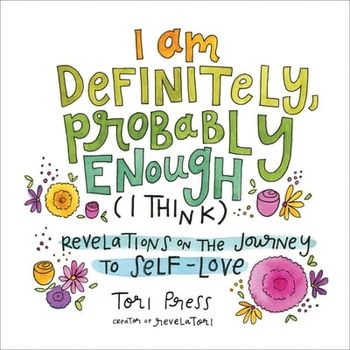 I am
DEFiNiTELY,
PRObAbLY
ENOUGH
(I THINK)
REVELATIONS ON THE JOURNEY
TO SELF-LOVE
TORI PRESS
CREATOR OF REVELATORI